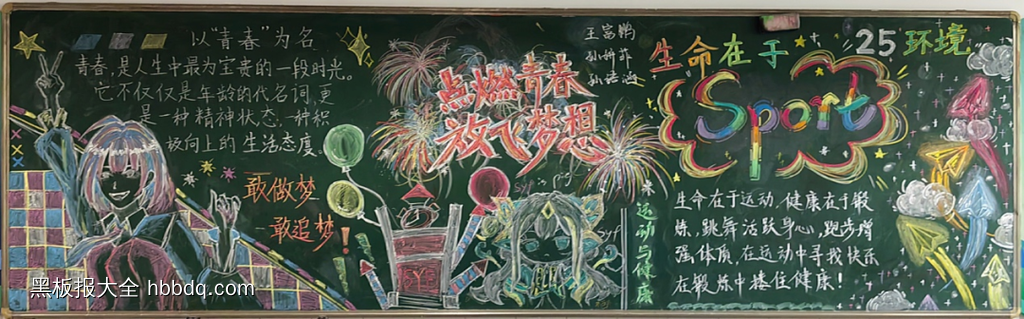 以“青春”为名
青春,是人生中最为宝贵的一段时光。
它不仅仅是年龄的代名词,更
是一种精神状态,一种积
极向上的生活态度
敢做梦
敢追梦
点燃青春
放飞梦想
王富鹏
syf
运动与健康
生命在于
Sport
25环境
生命在于运动,健康在于锻
炼,跳舞活跃身心,跑步增
强体质,在运动中寻找快乐
在锻炼中搂住健康!
黑板报大全 hbbdq.com